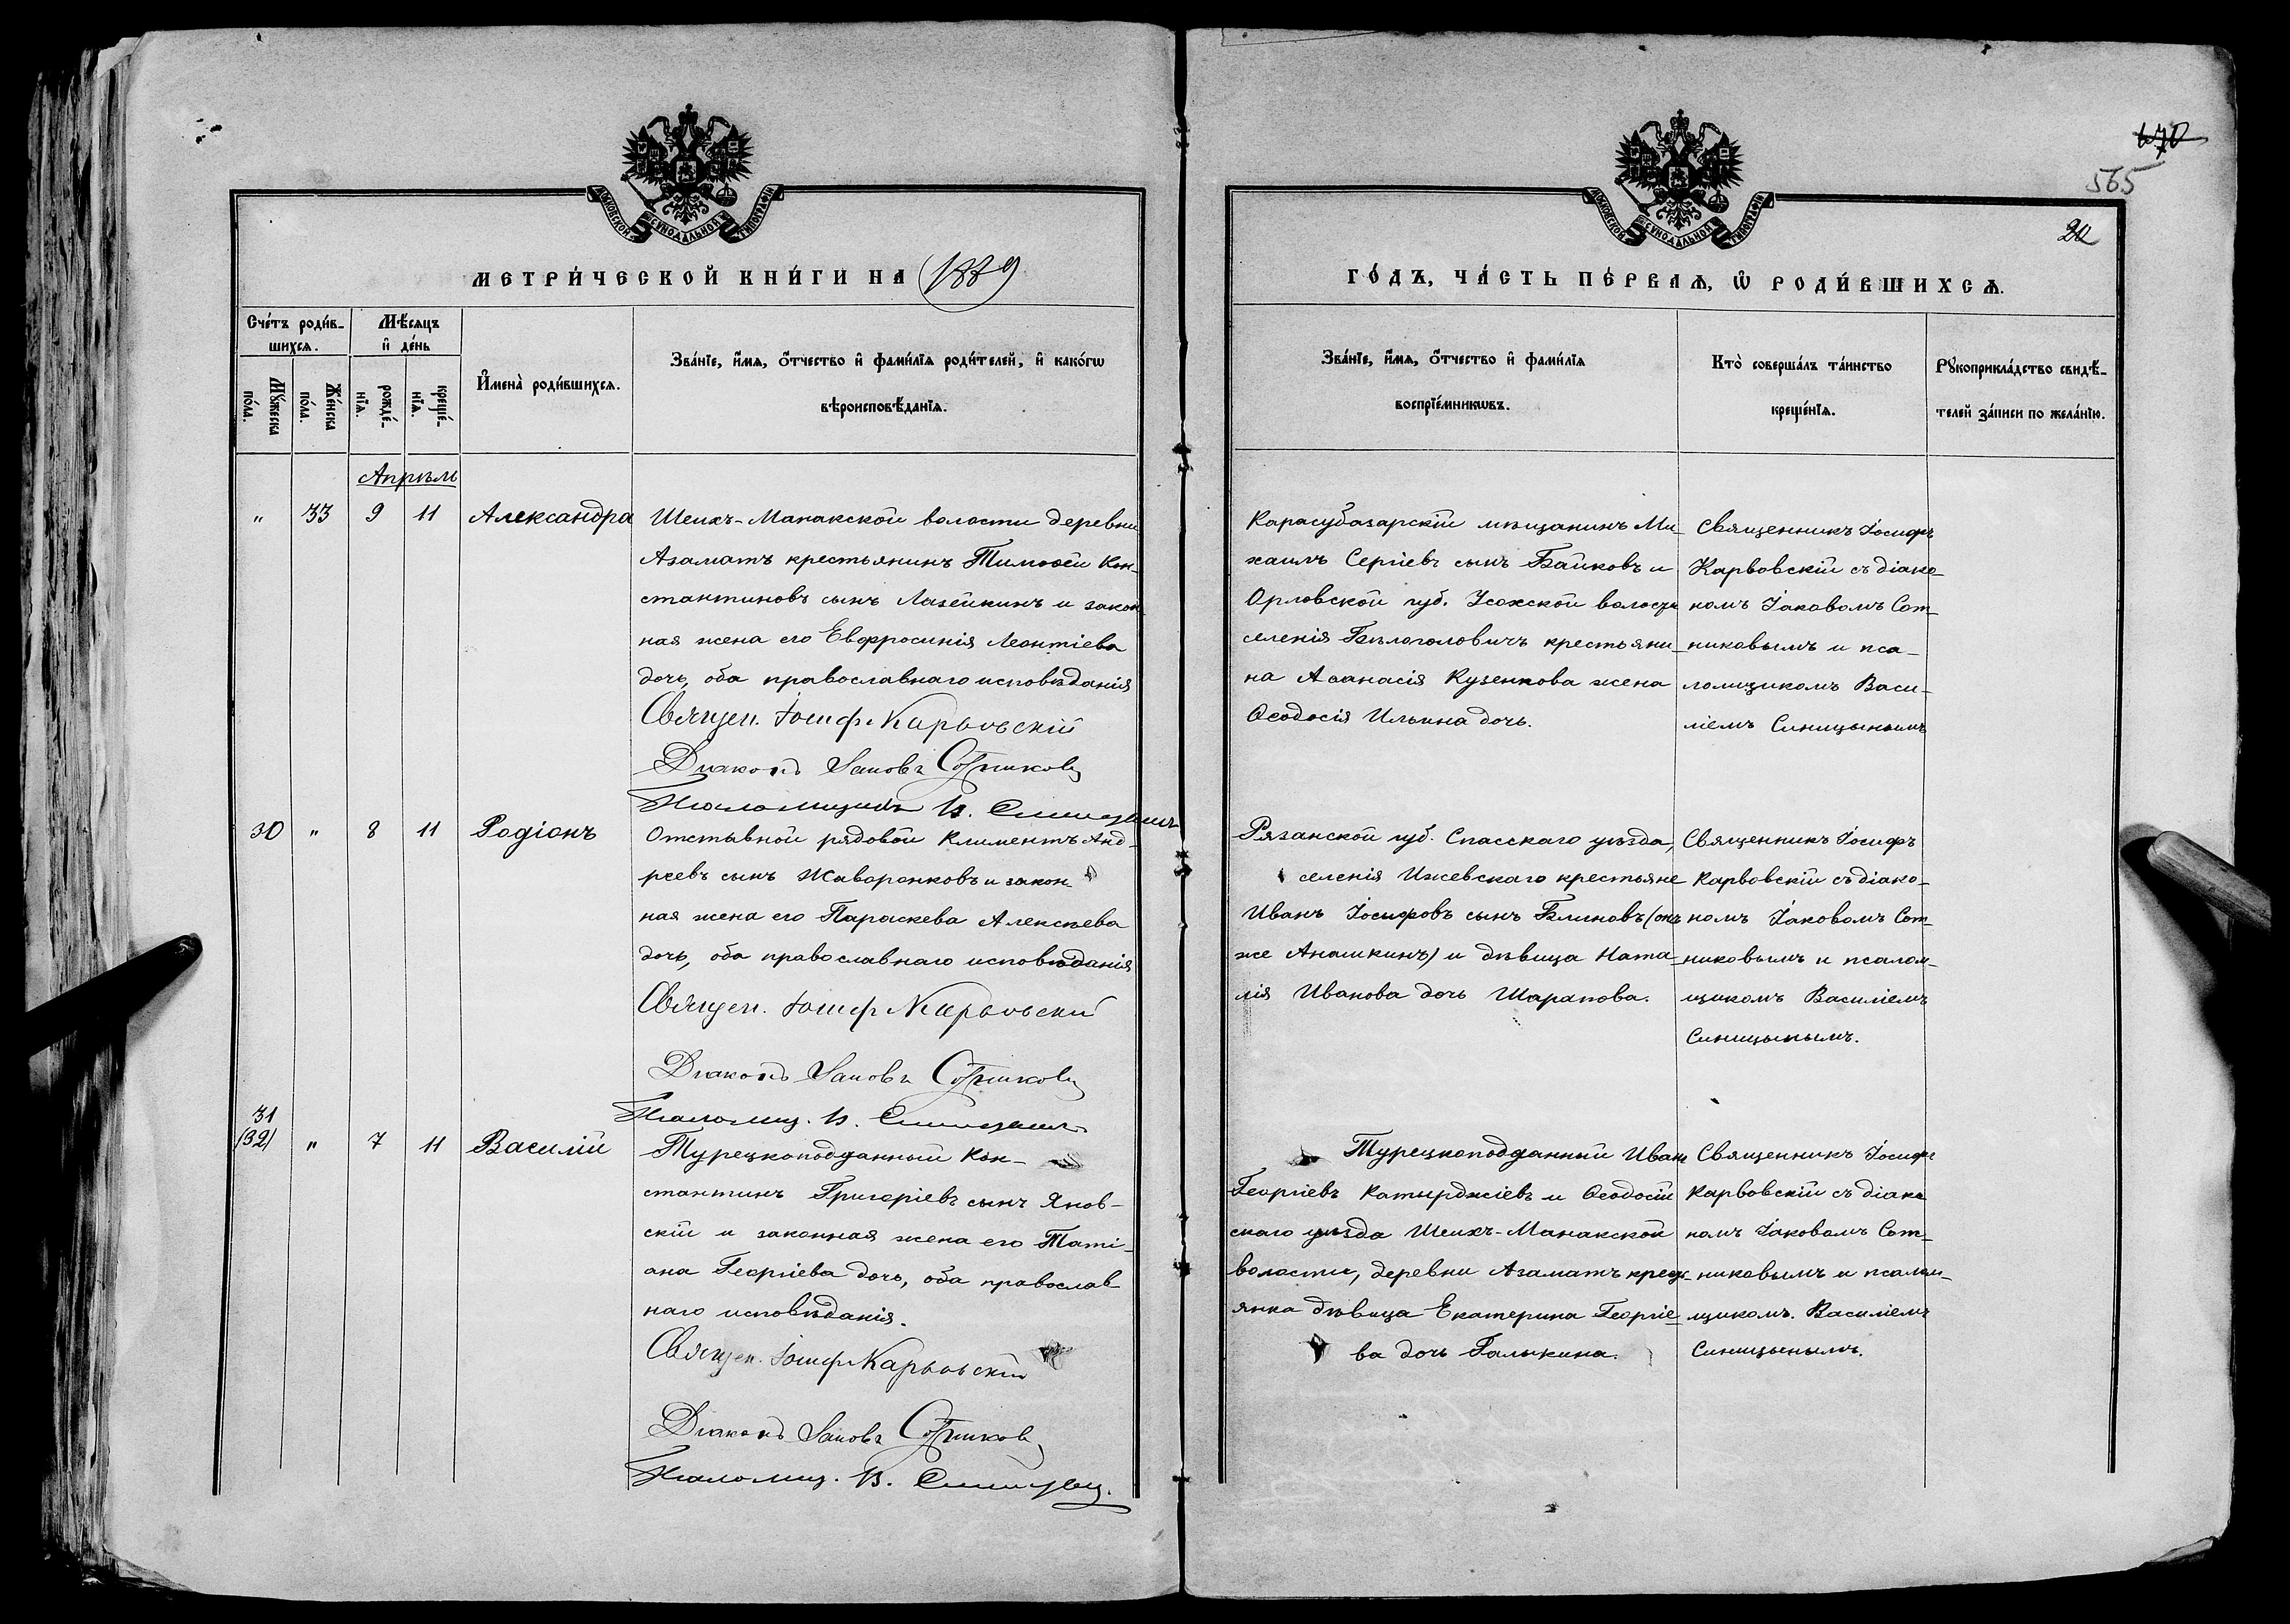 670
565
20
МОСКОВСКОЙ СѴНОДАЛЬНОЙ ТИПОГРАФІИ
МОСКОВСКОЙ СѴНОДАЛЬНОЙ ТИПОГРАФІИ
МЕТРИ́ЧЕСКОЙ КНИ́ГИ НА 1889
ГО́ДЪ, ЧА́СТЬ ПЕ́РВАѦ, Ѡ҆ РОДИ́ВШИХСѦ.
Сче́тъ роди́в-
шихсѧ.
Мꙋ́жеска
по́ла.
Же́нска
по́ла.
Мѣ́сѧцъ
и҆ де́нь
рожде́-
нїѧ.
креще́-
нїѧ.
И҆мена̀ роди́вшихсѧ.
Зва́нїе, и҆́мѧ, ѻ҆́тчество и҆ фами́лїѧ роди́телей, и҆ како́гѡ
вѣроисповѣ́данїѧ.
Зва́нїе, и҆́мѧ, ѻ҆́тчество и҆ фами́лїѧ
воспрїе́мникѡвъ.
Кто̀ соверша́лъ та́инство
креще́нїѧ.
Рꙋкоприкла́дство свидѣ́-
телей за́писи по жела́нїю.
Апрѣль
" 33 9 11 Александра
Шеихъ-Манакской волости деревни
Азаматъ крестьянинъ Тимоѳей Кон-
стантиновъ сынъ Лазейкинъ и закон-
ная жена его Евфросинія Леонтіева
дочь, оба православнаго исповѣданія
Священ. Іосиф Карвовскій
Діаконъ Іаковъ Сотниковъ
Псаломщикъ В. Синицынъ
Карасубазарскій мѣщанинъ Ми-
хаилъ Сергіевъ сынъ Байковъ и
Орловской губ. Усохской волости
селенія Бѣлоголовичъ крестьяни-
на Аѳанасія Кузенкова жена
Ѳеодосія Ильина дочь.
Священникъ Іосифъ
Карвовскій съ діако-
номъ Іаковомъ Сот-
никовымъ и пса-
ломщикомъ Васи-
ліемъ Синицынымъ
30 " 8 11 Родіонъ
Отставной рядовой Климентъ Анд-
реевъ сынъ Жаворонковъ и закон-
ная жена его Параскева Алексѣева
дочь, оба православнаго исповѣданія
Священ. Іосиф Карвовскій
Діаконъ Іаковъ Сотниковъ
Псаломщ. В. Синицынъ
Рязанской губ. Спасскаго уѣзда,
селенія Ижевскаго крестьяне
Иванъ Іосифовъ сынъ Блиновъ (онъ
же Анашкинъ) и дѣвица Ната-
лія Иванова дочь Шарапова.
Священникъ Іосифъ
Карвовскій съ діако-
номъ Іаковомъ Сот-
никовымъ и псалом-
щикомъ Василіемъ
Синицынымъ.
31
(32) " 7 11 Василій
Турецкоподданный Кон-
стантинъ Григоріевъ сынъ Янов-
скій и законная жена его Таті-
ана Георгіева дочь, оба православ-
наго исповѣданія.
Священ. Іосиф Карвовскій
Діаконъ Іаковъ Сотников
Псаломщ. В. Синицын.
Турецкоподданный Иванъ
Георгіевъ Катырджіевъ и Ѳеодосій
скаго уѣзда Шеихъ-Манакской
волости, деревни Азаматъ крест-
янка дѣвица Екатерина Георгіе-
ва дочь Галыкина.
Священникъ Іосифъ
Карвовскій съ діако
номъ Іаковомъ Сот-
никовымъ и псалом-
щикомъ. Василіемъ
Синицынымъ.